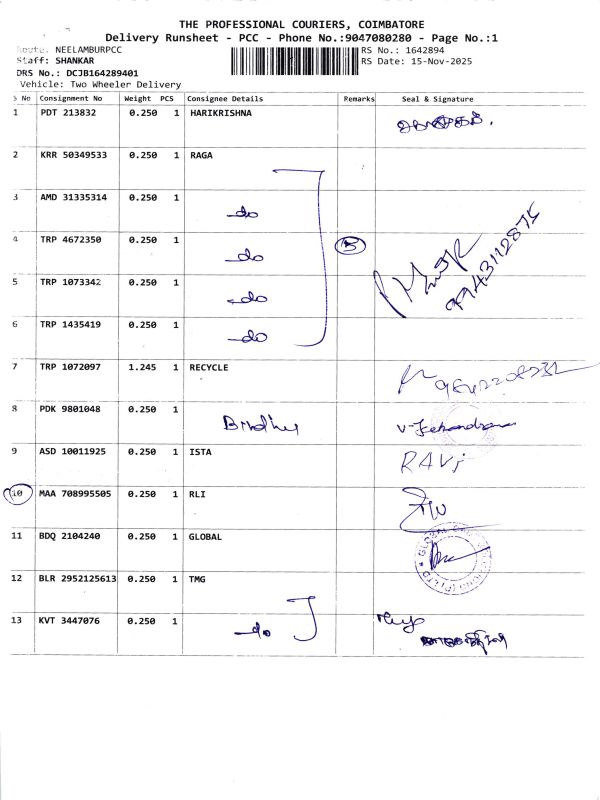 THE PROFESSIONAL COURIERS, COIMBATORE
Delivery Runsheet - PCC - Phone No.:9047080280 - Page No.:1
Route: NEELAMBURPCC RS No.: 1642894
Staff: SHANKAR RS Date: 15-Nov-2025
DRS No.: DCJB164289401
Vehicle: Two Wheeler Delivery
S No Consignment No Weight PCS Consignee Details Remarks Seal & Signature
1 PDT 213832 0.250 1 HARIKRISHNA
2 KRR 50349533 0.250 1 RAGA
3 AMD 31335314 0.250 1 do
4 TRP 4672350 0.250 1 do 5
5 TRP 1073342 0.250 1 do 9943112875
6 TRP 1435419 0.250 1 do
7 TRP 1072097 1.245 1 RECYCLE
8 PDK 9801048 0.250 1
9 ASD 10011925 0.250 1 ISTA RAVi
10 MAA 708995505 0.250 1 RLI
11 BDQ 2104240 0.250 1 GLOBAL
12 BLR 2952125613 0.250 1 TMG
13 KVT 3447076 0.250 1 do